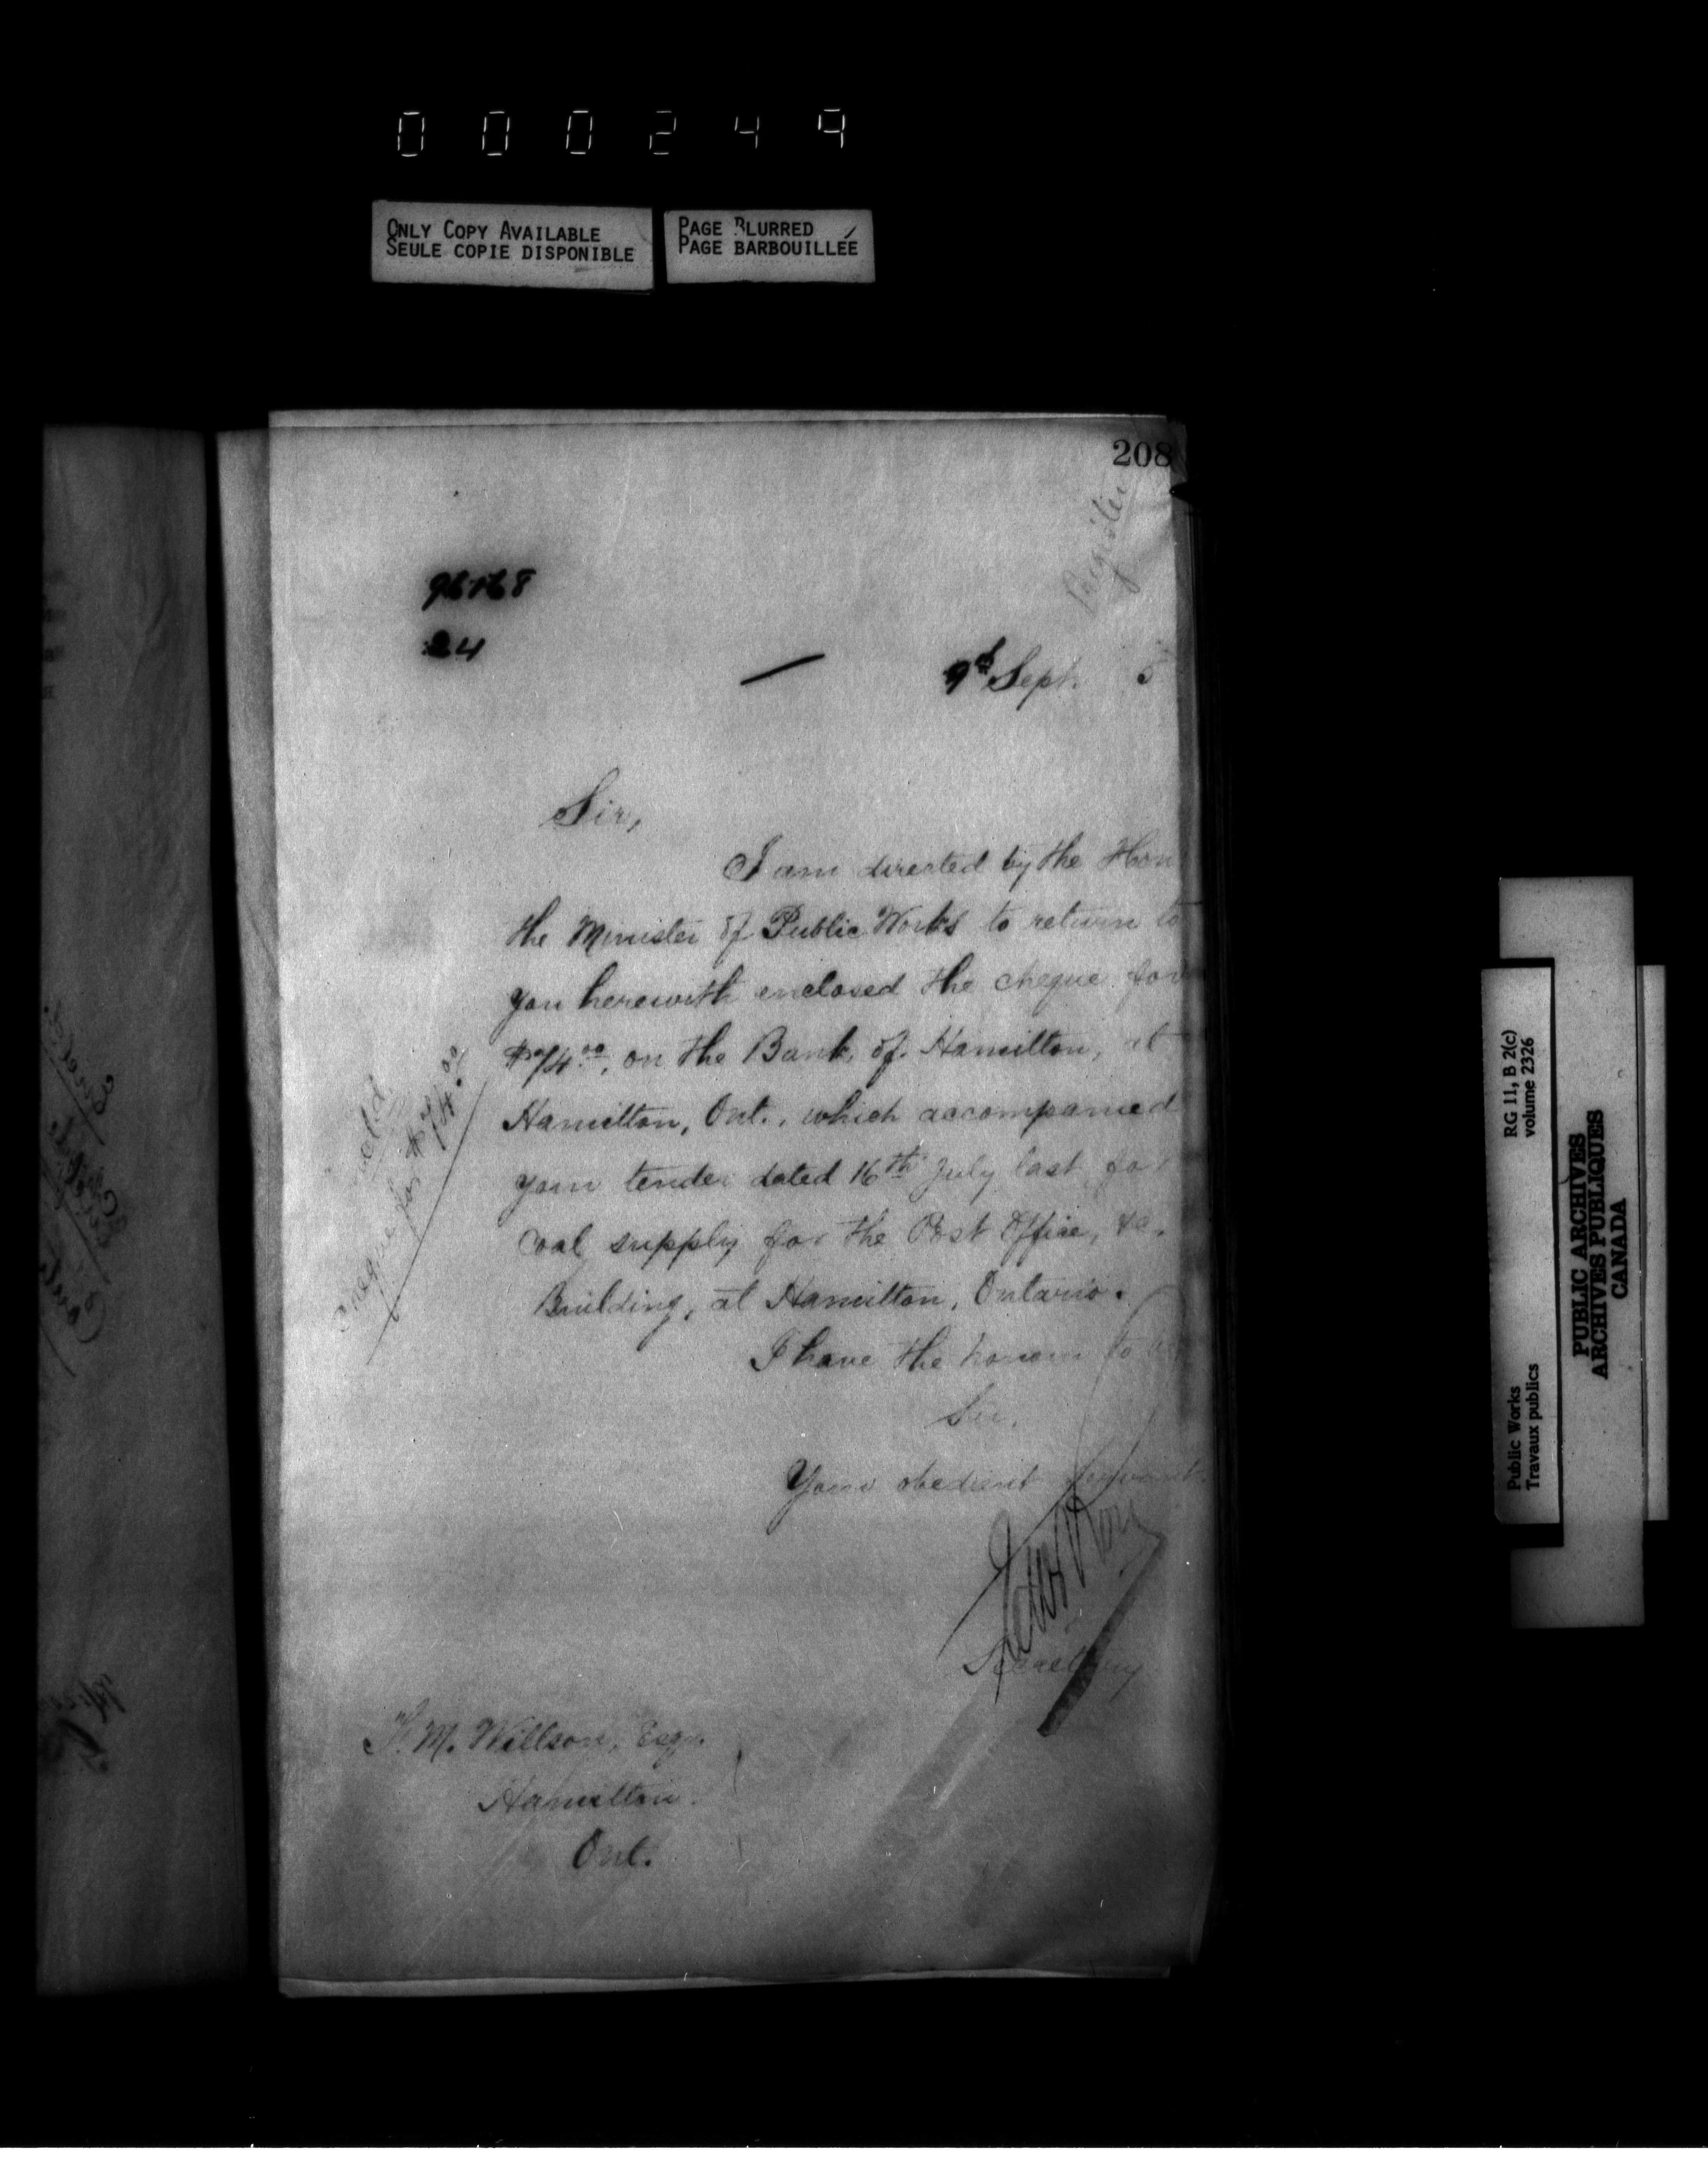 000249
ONLY COPY AVAILABLE
SEULE COPIE DISPONIBLE
PAGE BLURRED
PAGE BARBOUILLÉE
208
Register
24
9th Sept. 5
Sir,
I am directed by the Hon
the Minister of Public Works to return to
you herewith enclosed the cheque for
$74.00, on the Bank of Hamilton, at
Hamilton, Ont., which accompanied
your tender dated 16th July last for
coal supply for the Post Office, &c.
Building, at Hamilton, Ontario.
I have the honour to
Sir,
Your obedient servant
Secretary
M. Willson, Esqr.
Hamilton.
Ont.
Encld
Cheque for $74.00
Public Works
Travaux publics
RG 11, B 2(c)
volume 2326
PUBLIC ARCHIVES
ARCHIVES PUBLIQUES
CANADA